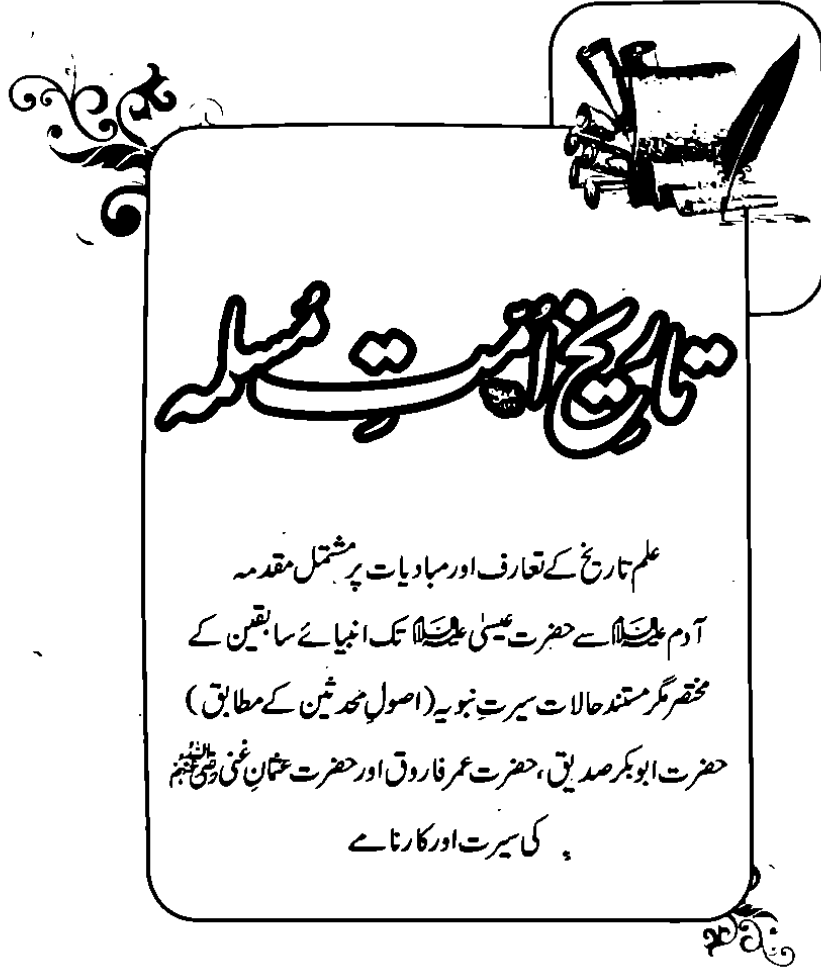 تاریخِ اُمّتِ مُسلمہ
علم تاریخ کے تعارف اور مبادیات پر مشتمل مقدمہ
آدم علیہ السلام سے حضرت عیسیٰ علیہ السلام تک انبیائے سابقین کے
مختصر مگر مستند حالات سیرتِ نبویہ (اصولِ محدثین کے مطابق)
حضرت ابوبکر صدیق، حضرت عمر فاروق اور حضرت عثمانِ غنی رضی اللہ عنہم
کی سیرت اور کارنامے